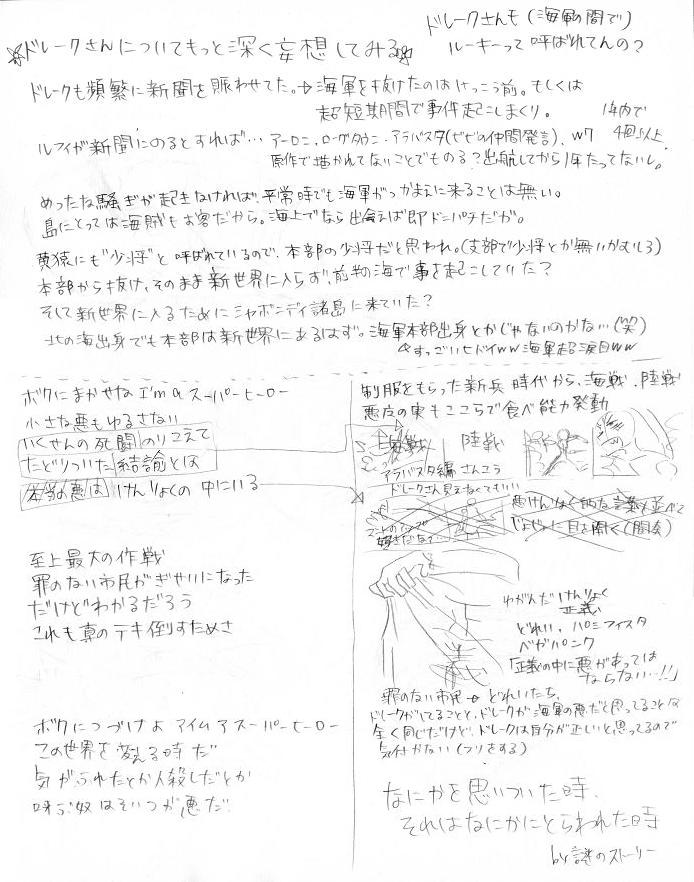 ☆ドレークさんについてもっと深く妄想してみる☆
ドレークさんも(海軍の間で)
ルーキーって呼ばれてんの?
ドレークも頻繁に新聞を賑わせてた。→海軍を抜けたのはけっこう前。もしくは
超短期間で事件起こしまくり。
ルフィが新聞にのるとすれば… アーロン、ローグタウン、アラバスタ(ビビの仲間発言)、W7
1年内で
4回以上。
原作で描かれてないことでものる?出航してから1年たってないし。
めったな騒ぎが起きなければ、平常時でも海軍がつかまえに来ることは無い。
島にとっては海賊もお客だから。海上でなら出会えば即ドンパチだが。
黄猿にも"少将"と呼ばれているので、本部の少将だと思われ。(支部で少将とか無いかむしろ)
本部から抜け、そのまま新世界に入らず、前半の海で事を起こしていた?
そして新世界に入るためにシャボンディ諸島に来ていた?
北の海出身でも本部は新世界にあるはず。海軍本部出身とかじゃないのかな…(笑)
すっごいヒドイww 海軍超涙目ww
ボクにまかせな I'm a スーパーヒーロー
小さな悪もゆるさない
いくせんの死闘のりこえて
たどりついた結論とは
本当の悪は けんりょくの中にいる
至上最大の作戦
罪のない市民がぎせいになった
だけどわかるだろう
これも真のテキ倒すためさ
ボクにつづけよ アイムアスーパーヒーロー
この世界を変える時だ
気がふれたとか人殺しだとか
呼ぶ奴はそいつが悪だ
制服をもらった新兵時代から、海戦、陸戦
悪魔の実もここらで食べ能力発動
海戦
陸戦
アラバスタ編さんこう
ドレークさん見えなくてもいい
悪 けんりょく的な言葉並べて
じょじょに目を開く(間奏)
ゆがんだ けんりょく
正義
どれい、パシフィスタ
ベガパンク
「正義の中に悪があっては
ならない…!!」
罪のない市民 → どれいたち。
ドレークがしてることと、ドレークが海軍の悪だと思ってることは
全く同じだけど、ドレークは自分が正しいと思ってるので
気付かない(フリをする)
なにかを思いついた時、
それはなにかにとらわれた時
by 謎のストーリー